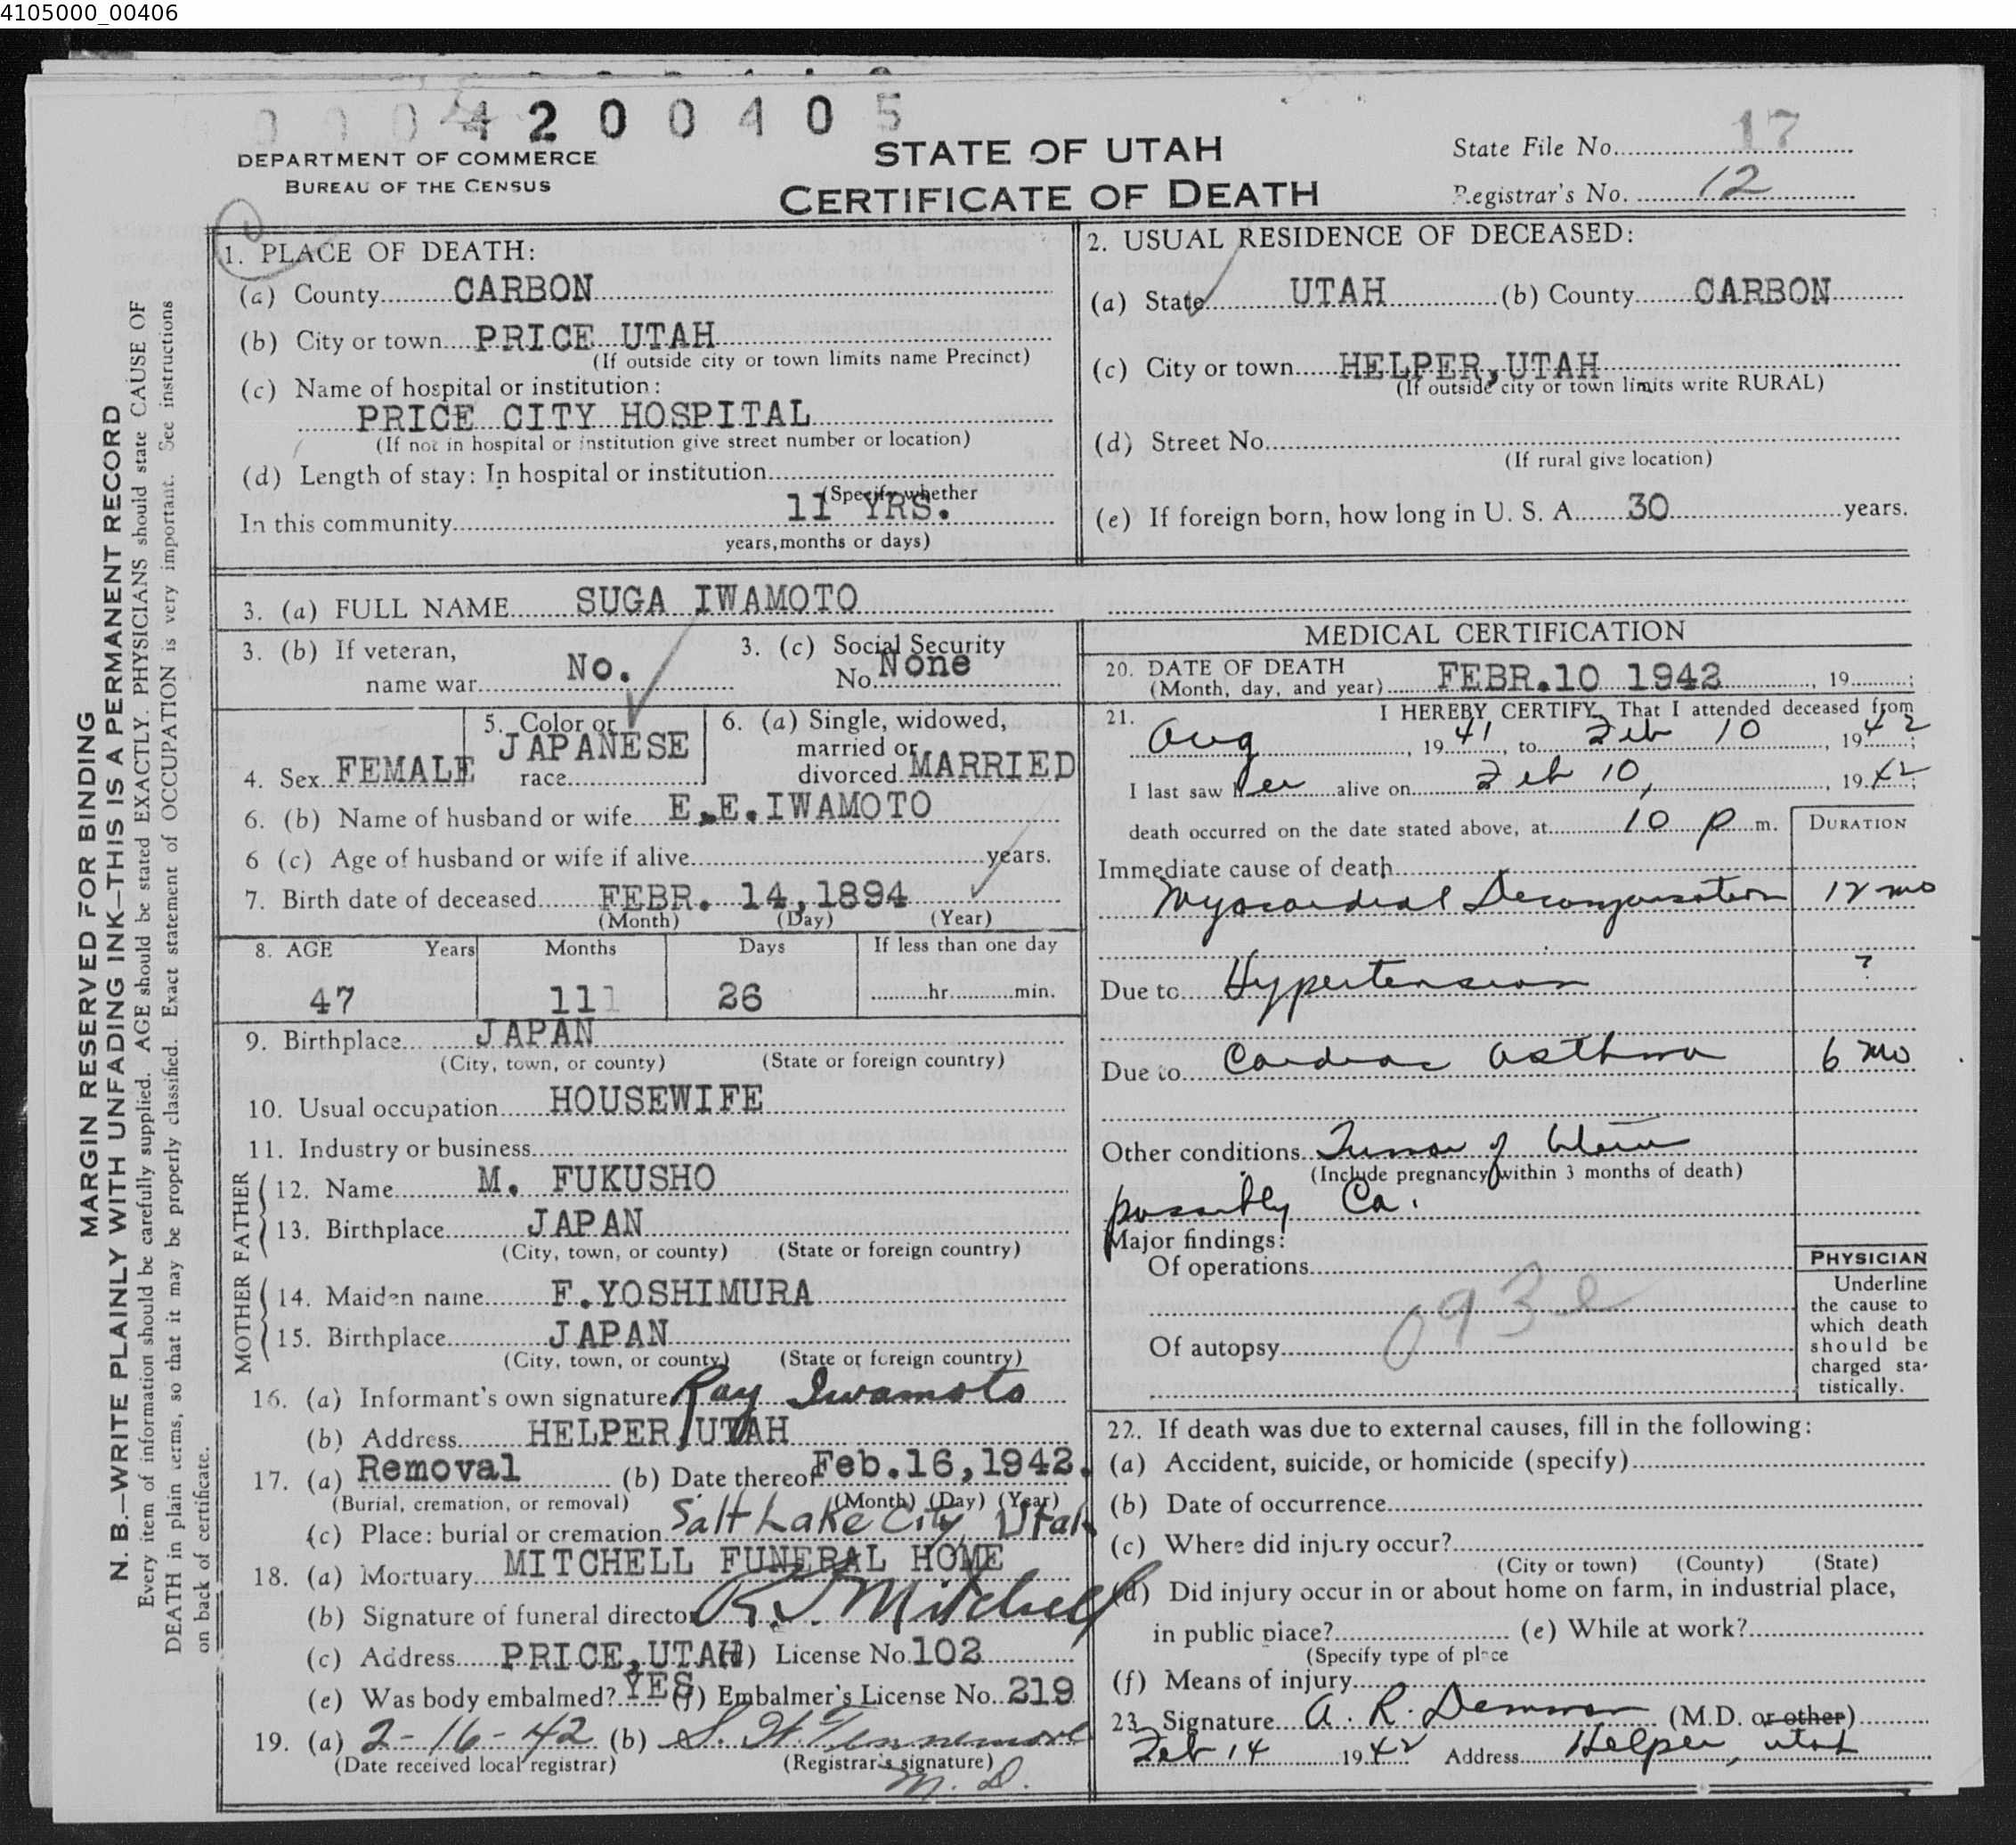 4105000_00406
0 0 0 4 2 0 0 4 0 5
DEPARTMENT OF COMMERCE
BUREAU OF THE CENSUS
STATE OF UTAH
CERTIFICATE OF DEATH
State File No. 17
Registrar's No. 12
MARGIN RESERVED FOR BINDING
N. B.—WRITE PLAINLY WITH UNFADING INK—THIS IS A PERMANENT RECORD
Every item of information should be carefully supplied. AGE should be stated EXACTLY. PHYSICIANS should state CAUSE OF
DEATH in plain terms, so that it may be properly classified. Exact statement of OCCUPATION is very important. See instructions
on back of certificate.
1. PLACE OF DEATH:
(a) County CARBON
(b) City or town PRICE UTAH
(If outside city or town limits name Precinct)
(c) Name of hospital or institution:
PRICE CITY HOSPITAL
(If not in hospital or institution give street number or location)
(d) Length of stay: In hospital or institution
(Specify whether
In this community 11 YRS.
years, months or days)
2. USUAL RESIDENCE OF DECEASED:
(a) State UTAH (b) County CARBON
(c) City or town HELPER, UTAH
(If outside city or town limits write RURAL)
(d) Street No.
(If rural give location)
(e) If foreign born, how long in U. S. A. 30 years.
3. (a) FULL NAME SUGA IWAMOTO
3. (b) If veteran, name war No.
3. (c) Social Security No. None
4. Sex FEMALE
5. Color or race JAPANESE
6. (a) Single, widowed, married or divorced MARRIED
6. (b) Name of husband or wife E.E.IWAMOTO
6 (c) Age of husband or wife if alive years.
7. Birth date of deceased FEBR. 14, 1894
(Month) (Day) (Year)
8. AGE Years Months Days If less than one day
47 111 26 hr. min.
9. Birthplace JAPAN
(City, town, or county) (State or foreign country)
10. Usual occupation HOUSEWIFE
11. Industry or business
FATHER
12. Name M. FUKUSHO
13. Birthplace JAPAN
(City, town, or county) (State or foreign country)
MOTHER
14. Maiden name F.YOSHIMURA
15. Birthplace JAPAN
(City, town, or county) (State or foreign country)
16. (a) Informant's own signature Ray Iwamoto
(b) Address HELPER, UTAH
17. (a) Removal (b) Date thereof Feb.16,1942.
(Burial, cremation, or removal) (Month) (Day) (Year)
(c) Place: burial or cremation Salt Lake City, Utah
18. (a) Mortuary MITCHELL FUNERAL HOME
(b) Signature of funeral director R. J. Mitchell
(c) Address PRICE, UTAH (d) License No. 102
(e) Was body embalmed? YES (f) Embalmer's License No. 219
19. (a) 2-16-42 (b) S. W. Tennemore
(Date received local registrar) (Registrar's signature)
M. D.
MEDICAL CERTIFICATION
20. DATE OF DEATH
(Month, day, and year) FEBR.10 1942, 19 ;
21. I HEREBY CERTIFY, That I attended deceased from
Aug, 1941, to Feb 10, 1942;
I last saw her alive on Feb 10, 1942;
death occurred on the date stated above, at 10 P m.
DURATION
Immediate cause of death
Myocardial Decompensation 12 mo
Due to Hypertension ?
Due to Cardiac Asthma 6 mo
Other conditions Tumor of Uterus
(Include pregnancy within 3 months of death)
possibly Ca.
Major findings:
Of operations
093e
Of autopsy
PHYSICIAN
Underline
the cause to
which death
should be
charged sta-
tistically.
22. If death was due to external causes, fill in the following:
(a) Accident, suicide, or homicide (specify)
(b) Date of occurrence
(c) Where did injury occur?
(City or town) (County) (State)
(d) Did injury occur in or about home on farm, in industrial place,
in public place? (e) While at work?
(Specify type of place
(f) Means of injury
23. Signature A. R. Demman (M.D. or other)
Feb 14 1942 Address Helper, Utah